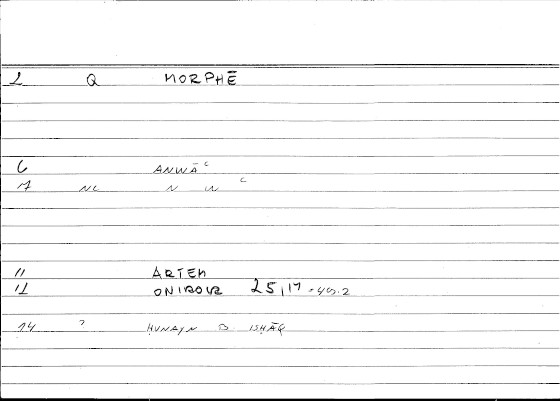 2 Q MORPHĒ
6 ANWĀʿ
17 NC N W ʿ
11 ARTEM
12 ONIROCR 25,17 - 45.2
14 ? HUNAYN B ISHĀQ